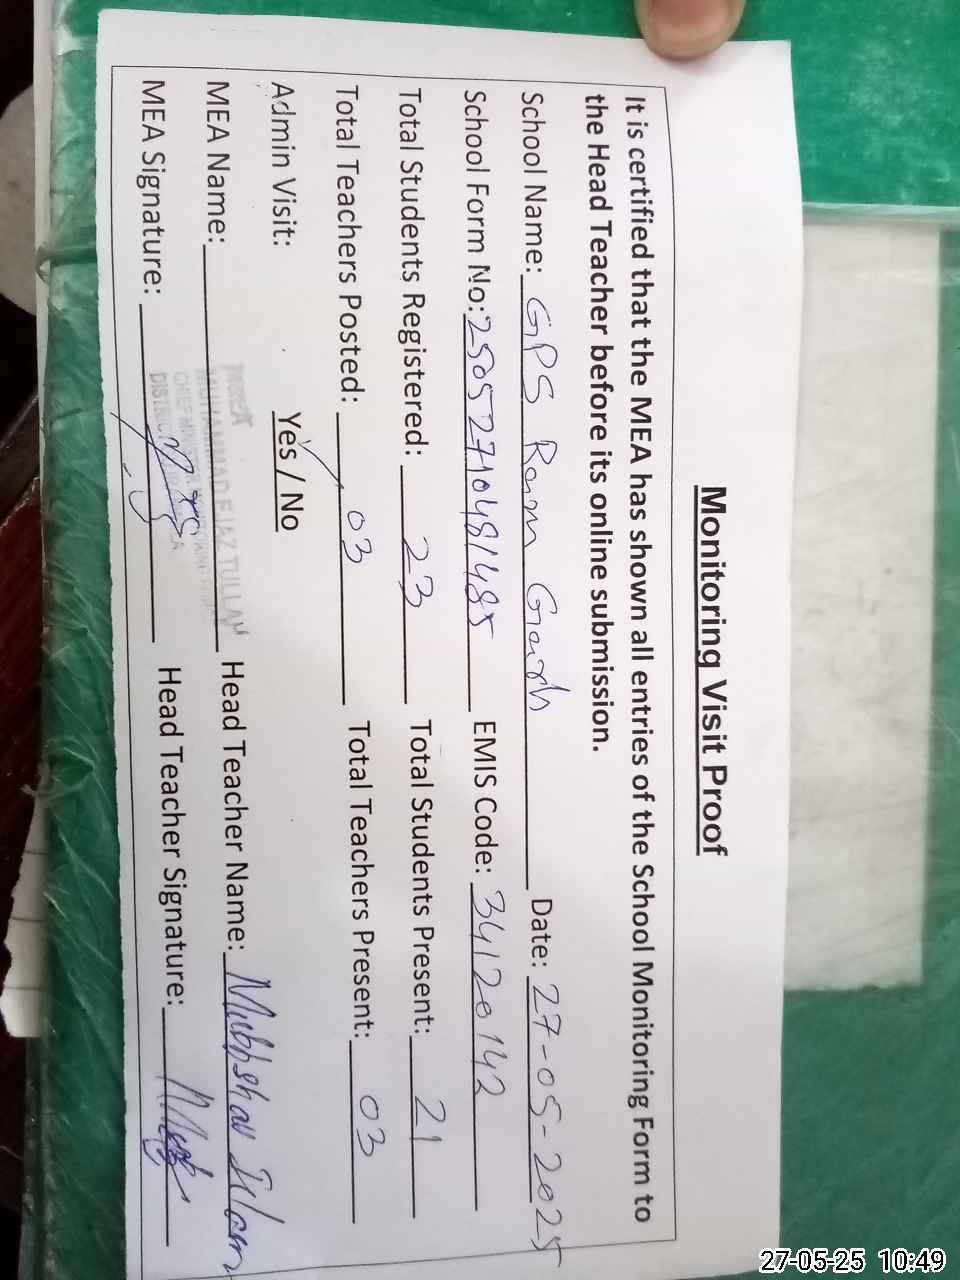 Monitoring Visit Proof
It is certified that the MEA has shown all entries of the School Monitoring Form to
the Head Teacher before its online submission.
School Name: GPS Ram Garh Date: 27-05-2025
School Form No: 25052710481485 EMIS Code: 34120142
Total Students Registered: 23 Total Students Present: 21
Total Teachers Posted: 03 Total Teachers Present: 03
Admin Visit: Yes / No
MEA Name: MUHAMMAD EJAZ TULLAH Head Teacher Name: Mubbshar Islam
MEA Signature: Head Teacher Signature:
27-05-25 10:49